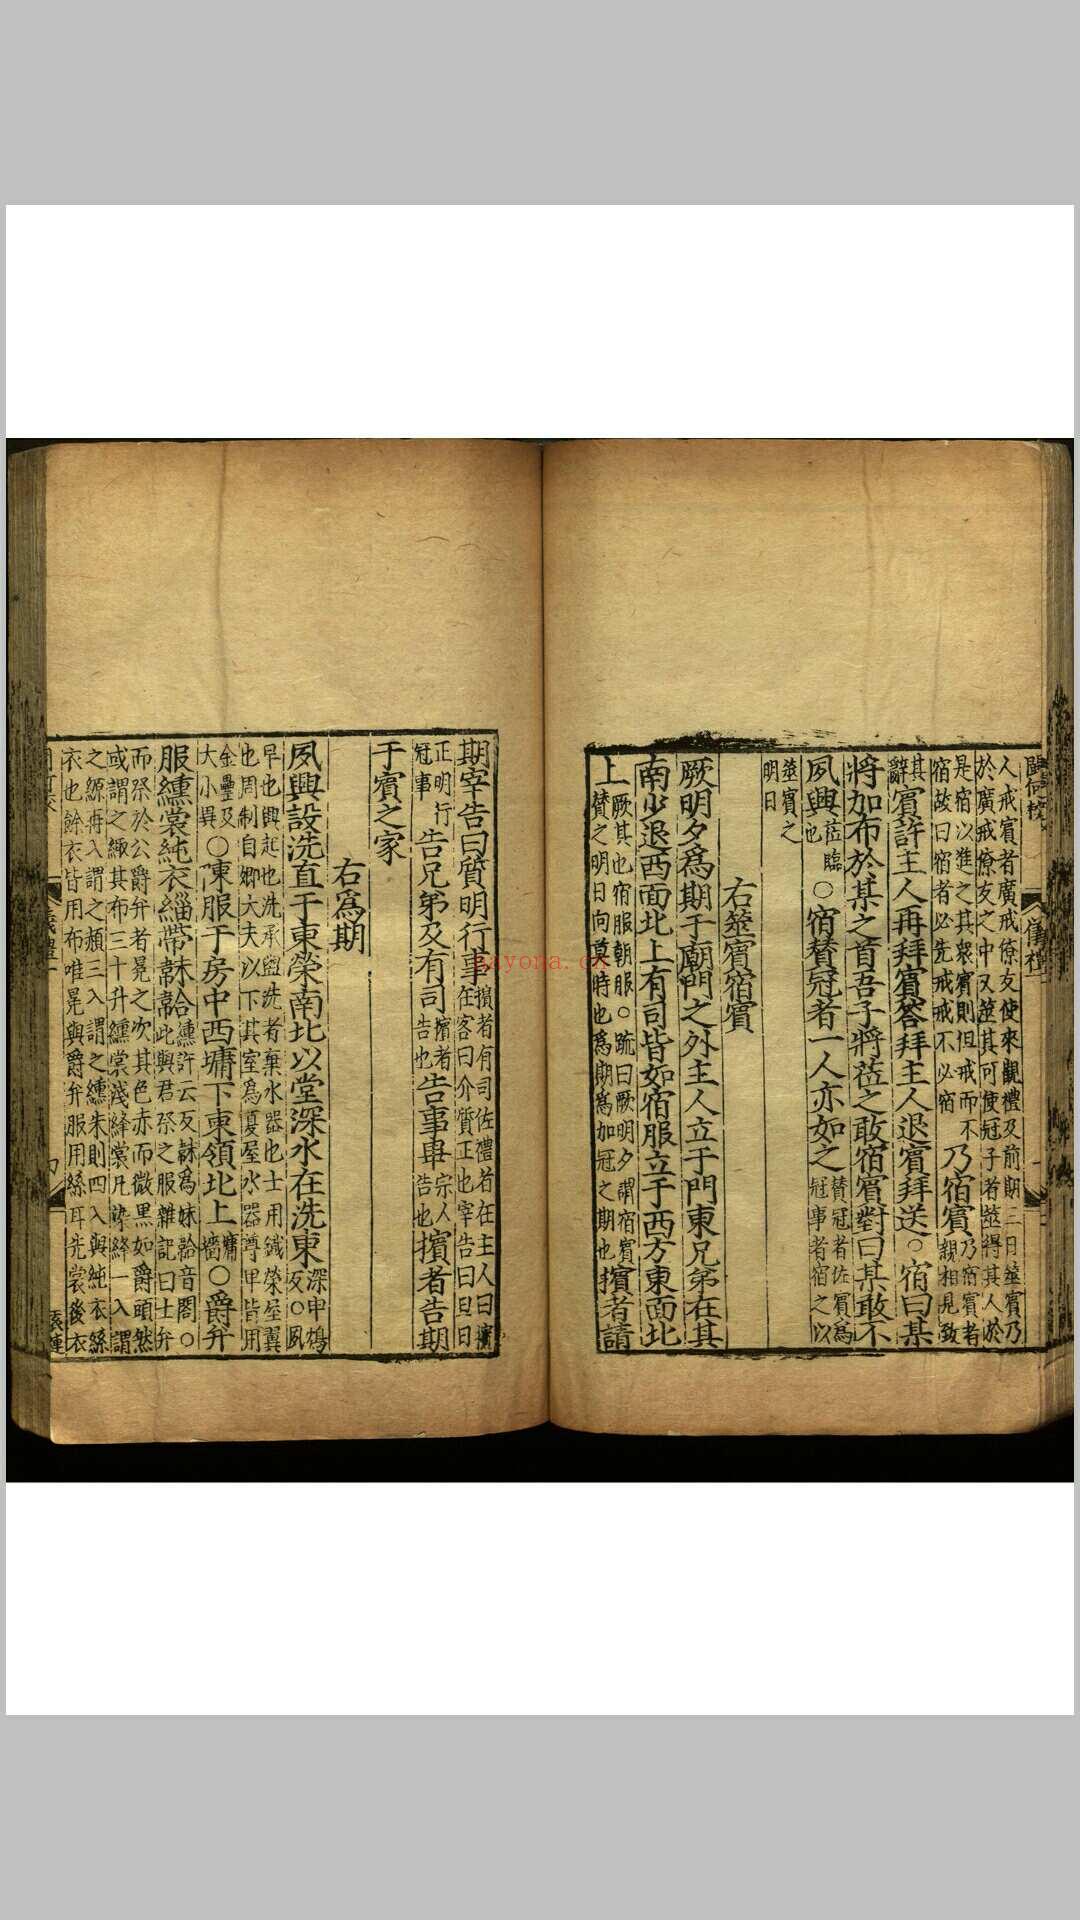 人戒賓者廣戒僚友使來觀禮及前期三日筮賓乃
於廣戒僚友之中又筮其可使冠子者筮得其人於
是宿以進之其衆賓則但戒而不
宿故曰宿者必先戒戒不必宿
乃宿賓
乃宿賓者
親相見致
其
辭
賓許主人再拜賓答拜主人退賓拜送○宿曰某
將加布於某之首吾子將莅之敢宿賓對曰某敢不
夙興
莅臨
也
○宿贊冠者一人亦如之
贊冠者佐賓爲
冠事者宿之以
筮賓之
明日
右筮賓宿賓
厥明夕爲期于廟門之外主人立于門東兄弟在其
南少退西面北上有司皆如宿服立于西方東面北
上
厥其也宿服朝服○疏曰厥明夕謂宿賓
贊之明日向暮時也爲期爲加冠之期也
擯者請
期宰告曰質明行事
擯者有司佐禮者在主人曰擯
在客曰介質正也宰告曰旦日
正明行
冠事
告兄弟及有司
擯者
告也
告事畢
宗人
告也
擯者告期
于賓之家
右爲期
夙興設洗直于東榮南北以堂深水在洗東
深申鴆
反○夙
早也興起也洗承盥洗者棄水器也士用鐵榮屋翼
也周制自卿大夫以下其室爲夏屋水器尊卑皆用
金罍及
大小異
○陳服于房中西墉下東領北上
墉
牆
○爵弁
服纁裳純衣緇帶韎韐
此與君祭之服雜記曰士弁
而祭於公爵弁者冕之次其色赤而微黑如爵頭然
或謂之緅其布三十升纁裳淺絳裳凡染絳一入謂
之縓再入謂之赬三入謂之纁朱則四入與純衣絲
衣也餘衣皆用布唯冕與爵弁服用絲耳先裳後衣
儀禮一